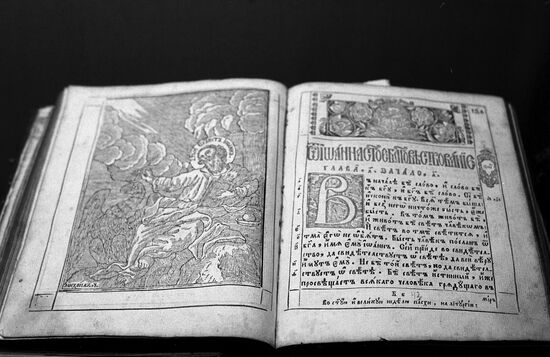 Ѿ ІѠАННА СТОЕ БЛГОВѢСТВОВАНІЕ
ГЛАВА, А҃. ЗАЧАЛО, А҃.
Въ началѣ бѣ слово, и слово бѣ
къ бг҃у, и бг҃ъ бѣ слово. Сей бѣ
искони къ бг҃у. Вся тѣмъ быша
и безъ него ничтоже бысть, еже
бысть. Въ томъ животъ бѣ,
и животъ бѣ свѣтъ человѣкѡмъ.
И свѣтъ во тмѣ свѣтится, и
тма єгѡ не ѡб̾ятъ. Бысть человѣкъ посланъ ѿ
бг҃а, имя ємꙋ іѡаннъ. Сей пріиде во свидѣтел-
ство, да свидѣтелствꙋетъ ѡ свѣтѣ, да вси вѣрꙋ
имꙋтъ ємꙋ. Не бѣ той свѣтъ, но да свидѣтел-
ствꙋетъ ѡ свѣтѣ. Бѣ свѣтъ истинный, иже
просвѣщаетъ всякаго человѣка грядꙋщаго въ
миръ
Во ст҃ꙋю и великꙋю недѣлю пасхи, на літꙋргіи.